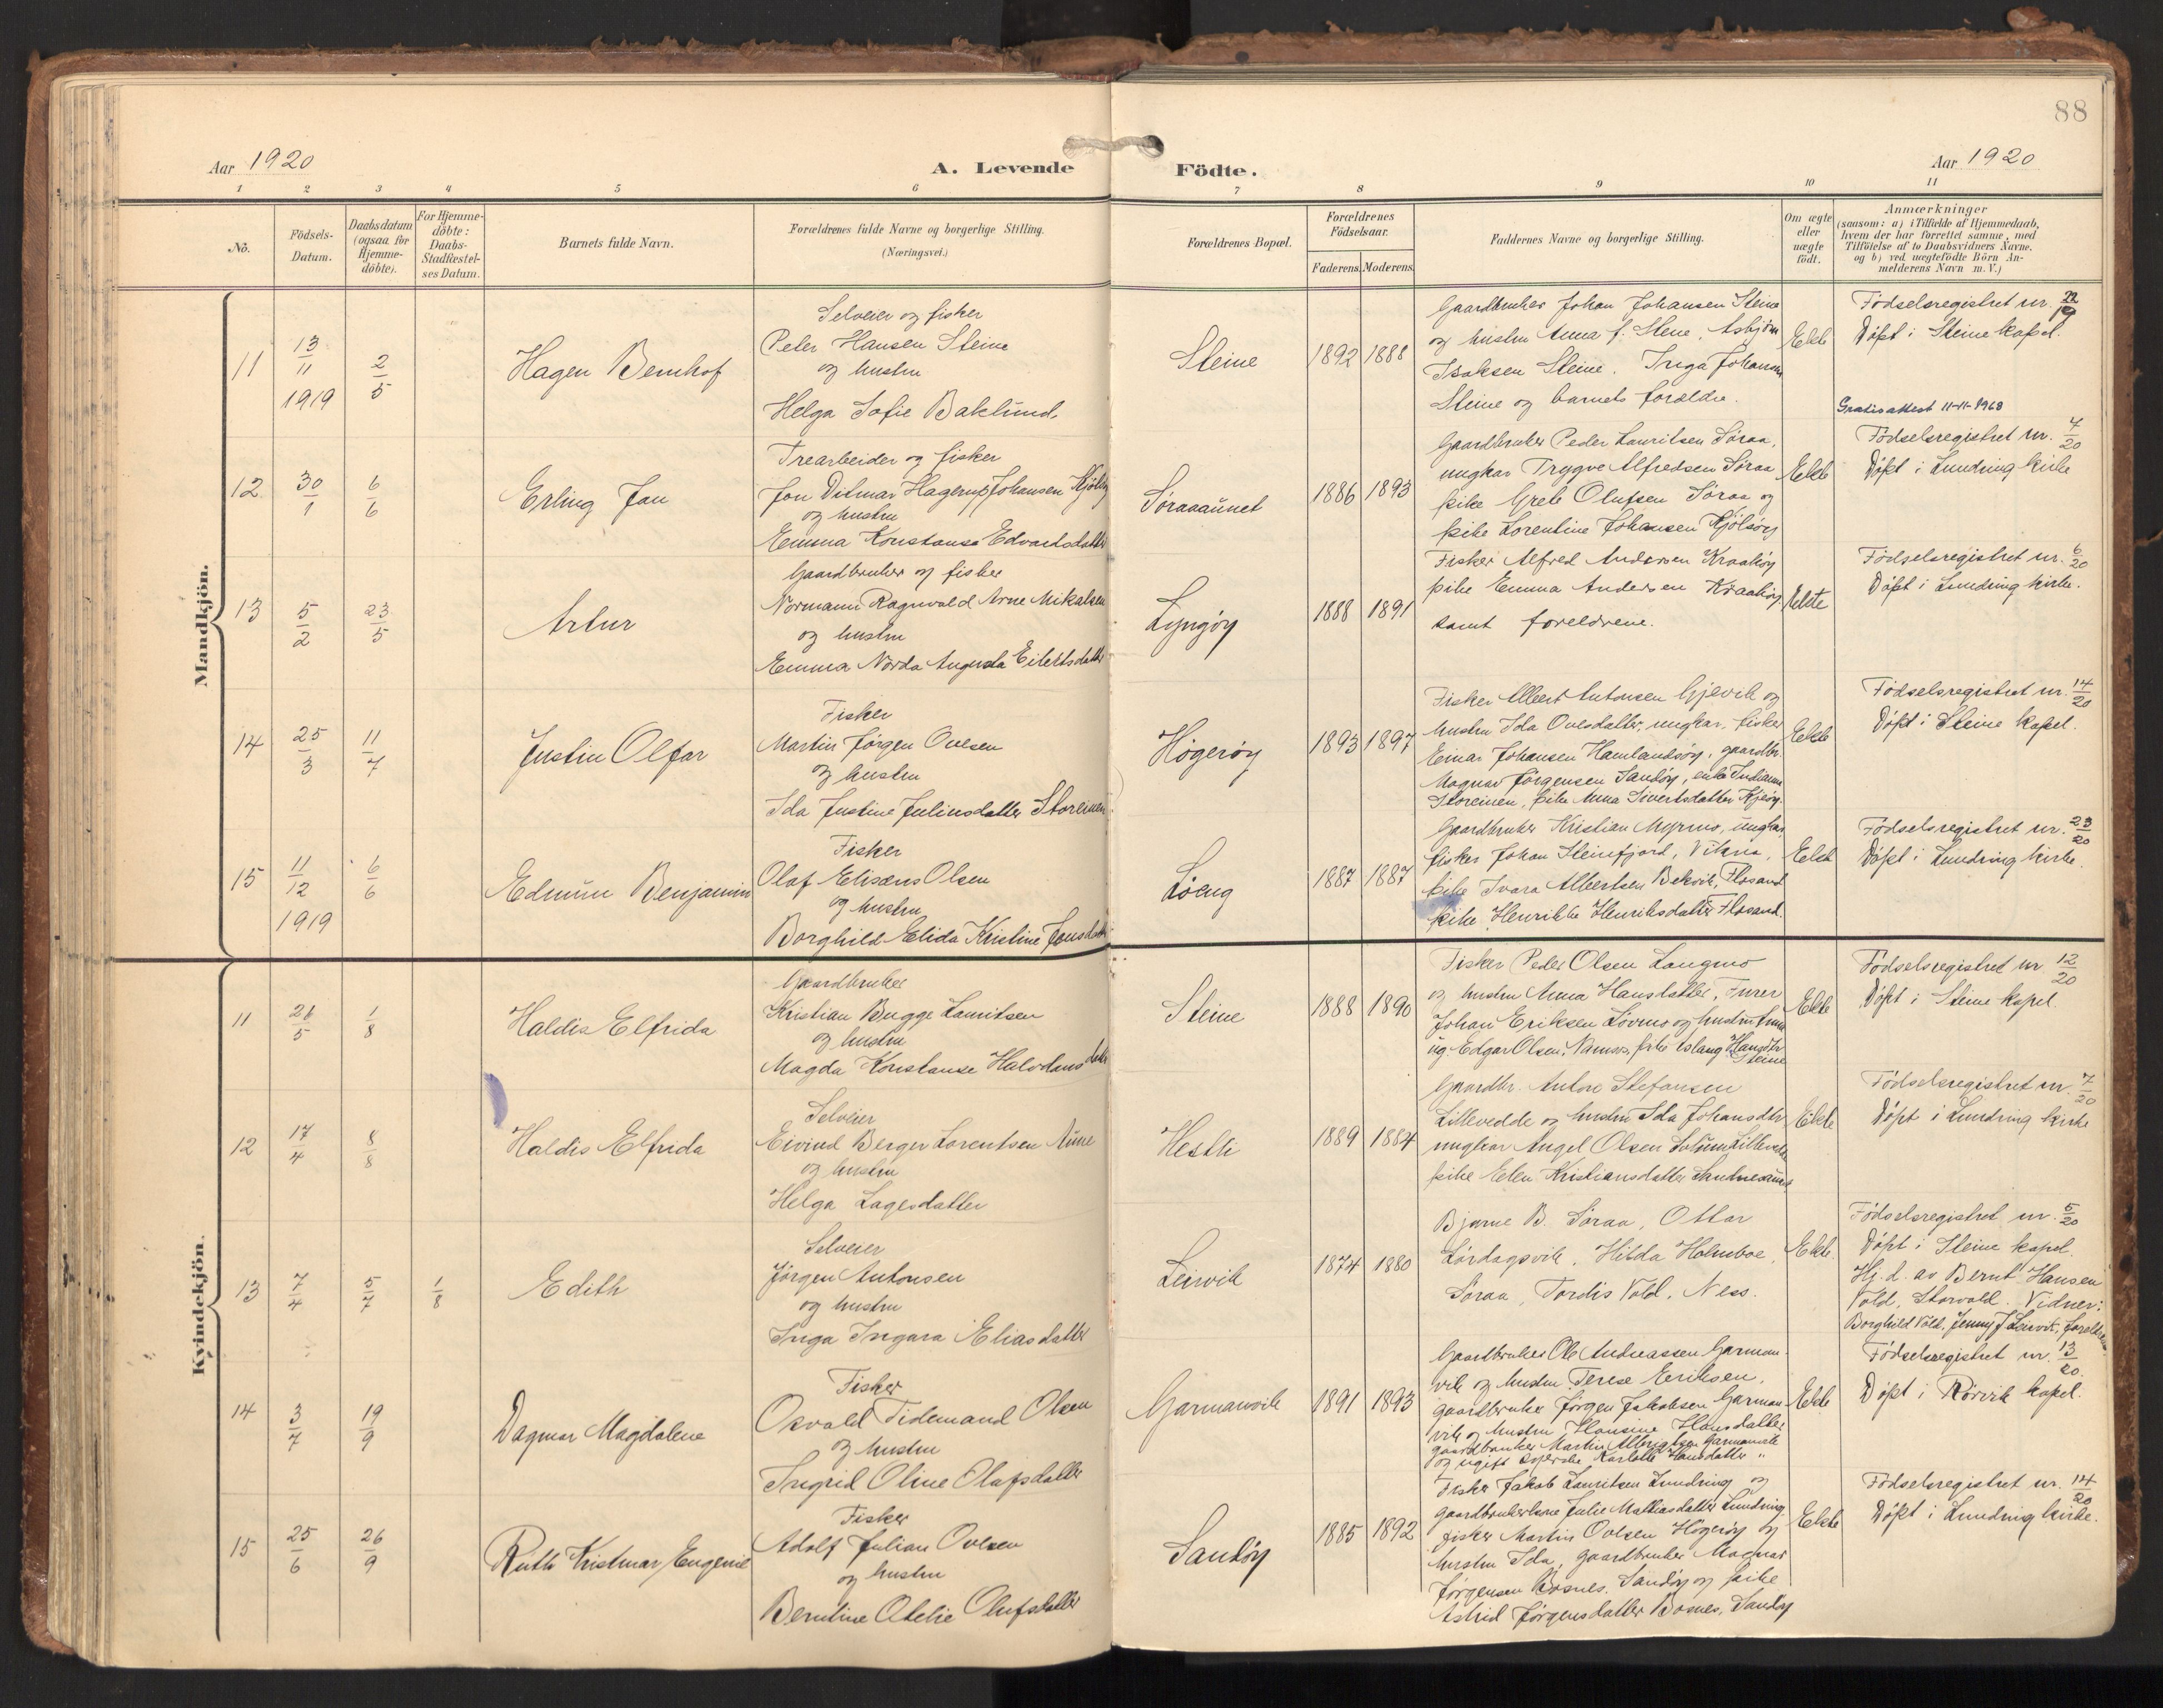 88
Aar 1920
A. Levende Födte.
Aar 1920
1 2 3 4 5 6 7 8 9 10 11
No.
Födsels-
Datum.
Daabsdatum
(ogsaa for
Hjemme-
döbte).
For Hjemme-
döbte:
Daabs-
Stadfæstel-
ses Datum.
Barnets fulde Navn.
Forældrenes fulde Navne og borgerlige Stilling.
(Næringsvei.)
Forældrenes Bopæl.
Forældrenes
Födselsaar.
Faderens Moderens
Faddernes Navne og borgerlige Stilling.
Om ægte
eller
uægte
födt.
Anmærkninger
(saasom: a) i Tilfælde af Hjemmedaab,
hvem der har forrettet samme, med
Tilföielse af to Daabsvidners Navne,
og b) ved uægtefödte Börn An-
melderens Navn m. V.)
Mandkjön.
11
13/11
1919
2/5
Hagen Bernhof
Selveier og fisker
Peter Hansen Steine
og hustru
Helga Sofie Baklund
Steine
1892 1888
Gaardbruker Johan Johansen Steine
og hustru Anna J. Stene, Asbjørn
Isaksen Steine. Inga Johansen
Steine og barnets forældre.
Ekte
Fødselsregistret nr. 22/19
Døpt i Steine kapel.
Gratisattest 11-11-1968
12
30/1
6/6
Erling Jan
Trearbeider og fisker
Jon Ditmar Hagerup Johansen Kjølsøy
og hustru
Emma Konstanse Edvardsdatter
Søraaaunet
1886 1893
Gaardbruker Peder Lauritsen Søraa,
ungkar Trygve Alfredsen Søraa
pike Grete Olufsen Søraa og
pike Lorentine Johansen Kjølsøy
Ekte
Fødselsregistret nr. 4/20
Døpt i Lundring kirke
13
5/2
23/5
Artur
Gaardbruker og fisker
Normann Ragnvald Arne Mikalsen
og hustru
Emma Norda Augusta Eilertsdatter
Lyngøy
1888 1891
Fisker Alfred Andersen Kraakøy
pike Emma Andersen Kraakøy
samt foreldrene.
Ekte
Fødselsregistret nr. 6/20
Døpt i Lundring kirke.
14
25/3
11/7
Justin Olfar
Fisker
Martin Jørgen Ovesen
og hustru
Ida Justine Juliusdatter Storeinen
Høgerøy
1893 1897
Fisker Albert Antonsen Gjevik og
hustru Ida Ovesdatter, ungkar, fisker
Einar Johansen Hamlandsøy, gaardbr.
Magnar Jørgensen Sandøy, enke Indiana
Storeinen, pike Anna Sivertsdatter Kjeøy.
Ekte
Fødselsregistret nr. 14/20
Døpt i Steine kapel.
15
11/12
1919
6/6
Edmun Benjamin
Fisker
Olaf Eliseus Olsen
og hustru
Borghild Elida Kristine Jensdatter
Løeng
1887 1887
Gaardbruker Kristian Myrmo, ungkar
fisker Johan Steinfjord, Vikna,
pike Ivara Albertsen Bekvik, Flosand
pike Henrikke Henriksdatter Flosand.
Ekte
Fødselsregistret nr. 23/20
Døpt i Lundring kirke.
Kvindekjön.
11
26/5
1/8
Haldis Elfrida
Gaardbruker
Kristian Bugge Lauritsen
og hustru
Magda Konstanse Halvdansdatter
Steine
1888 1890
Fisker Peder Olsen Langmo
og hustru Anna Hansdatter, Furer
Johan Eriksen Løvmo og hustru
ug. Edgar Olsen, Namsos, pike Aslaug Hansdtr
Steine
Ekte
Fødselsregistret nr 12/20
Døpt i Steine kapel
12
17/4
8/8
Haldis Elfrida
Selveier
Eivind Berger Lorentsen Aune
og hustru
Helga Lagesdatter
Hestli
1889 1884
Gaardbr. Anton Stefansen
Lillevedde og hustru Ida Johansdtr
ungkar Angel Olsen Solum Lillevedde
pike Elen Kristiansdatter Sandnesaunet
Ekte
Fødselsregistret nr. 7/20
Døpt i Lundring kirke
13
7/4
5/7
1/8
Edith
Selveier
Jørgen Antonsen
og hustru
Inga Ingara Eliasdatter
Leirvik
1874 1880
Bjarne B. Søraa, Ottar
Lørdagsvik, Hilda Holmboe
Søraa, Tordis Vold, Ness.
Ekte.
Fødselsregistret nr. 5/20
Døpt i Steine kapel.
Hj.d. av Bernt Hansen
Vold, Storvold. Vidner:
Borghild Vold, Jenny J Leirvik, foreldrene.
14
3/7
19/9
Dagmar Magdalene
Fisker
Osvald Tidemand Olsen
og hustru
Ingrid Oline Olafsdatter
Garmanvik
1891 1893
Gaardbruker Ole Andreassen Garman-
vik og hustru Terese Eriksen,
gaardbruker Jørgen Jakobsen Garman
vik og hustru Hansine Hansdatter
gaardbruker Martin Albrigtsen Garmanvik
og ugift syerske Karlotte Hansdatter "
Ekte
Fødselsregistret nr. 13/20
Døpt i Rørvik kapel.
15
25/6
26/9
Ruth Kristmar Eugenie
Fisker
Adolf Julian Ovesen
og hustru
Berntine Otelie Olufsdatter
Sandøy
1885 1892
Fisker Jakob Lauritsen Lundring og
gaardbrukerkone Julie Mathiasdatter Lundring
fisker Martin Ovesen Høgerøy og
hustru Ida, gaardbruker Magnar
Jørgensen Bosnes, Sandøy og pike
Astrid Jørgensdatter Bosnes, Sandøy
Ekte
Fødselsregistret nr. 14/20
Døpt i Lundring kirke.